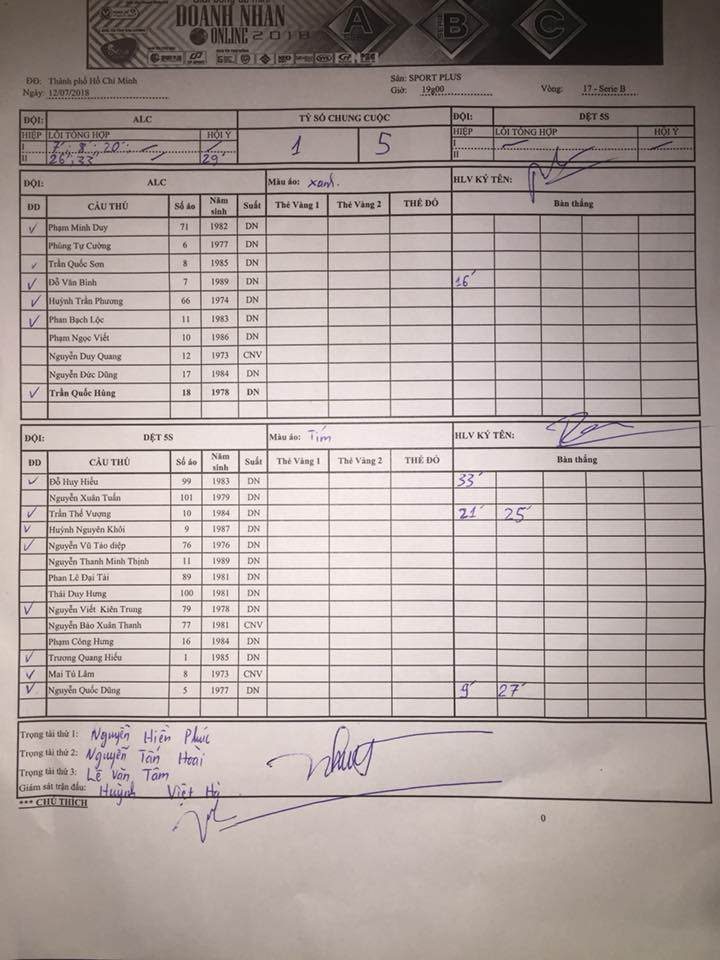 DOANH NHÂN
ONLINE 2018
A B C
ĐĐ: Thành phố Hồ Chí Minh Sân: SPORT PLUS
Ngày: 12/07/2018 Giờ: 19g00 Vòng: 17 - Serie B
ĐỘI: ALC TỶ SỐ CHUNG CUỘC ĐỘI: DỆT 5S
HIỆP LỖI TỔNG HỢP HỘI Ý 1 5 HIỆP LỖI TỔNG HỢP HỘI Ý
I 7' 8' 20' I
II 26' 33' 29' II
ĐỘI: ALC Màu áo: xanh. HLV KÝ TÊN:
DD CẦU THỦ Số áo Năm sinh Suất Thẻ Vàng 1 Thẻ Vàng 2 THẺ ĐỎ Bàn thắng
✓ Phạm Minh Duy 71 1982 DN
Phùng Tự Cường 6 1977 DN
✓ Trần Quốc Sơn 8 1985 DN
✓ Đỗ Văn Bình 7 1989 DN 16'
✓ Huỳnh Trần Phương 66 1974 DN
✓ Phan Bạch Lộc 11 1983 DN
Phạm Ngọc Viết 10 1986 DN
Nguyễn Duy Quang 12 1973 CNV
Nguyễn Đức Dũng 17 1984 DN
✓ Trần Quốc Hùng 18 1978 DN
ĐỘI: DỆT 5S Màu áo: Tím HLV KÝ TÊN:
DD CẦU THỦ Số áo Năm sinh Suất Thẻ Vàng 1 Thẻ Vàng 2 THẺ ĐỎ Bàn thắng
✓ Đỗ Huy Hiếu 99 1983 DN 33'
Nguyễn Xuân Tuấn 101 1979 DN
✓ Trần Thế Vượng 10 1984 DN 21' 25'
✓ Huỳnh Nguyên Khôi 9 1987 DN
✓ Nguyễn Vũ Tảo diệp 76 1976 DN
Nguyễn Thanh Minh Thịnh 11 1989 DN
Phan Lê Đại Tài 89 1981 DN
Thái Duy Hưng 100 1981 DN
✓ Nguyễn Viết Kiên Trung 79 1978 DN
Nguyễn Bảo Xuân Thanh 77 1981 CNV
Phạm Công Hưng 16 1984 DN
✓ Trương Quang Hiếu 1 1985 DN
✓ Mai Tú Lâm 8 1973 CNV
✓ Nguyễn Quốc Dũng 5 1977 DN 9' 27'
Trọng tài thứ 1: Nguyễn Hiền Phúc
Trọng tài thứ 2: Nguyễn Tấn Hoài
Trọng tài thứ 3: Lê Văn Tâm
Giám sát trận đấu: Huỳnh Việt Hà
*** CHÚ THÍCH
0